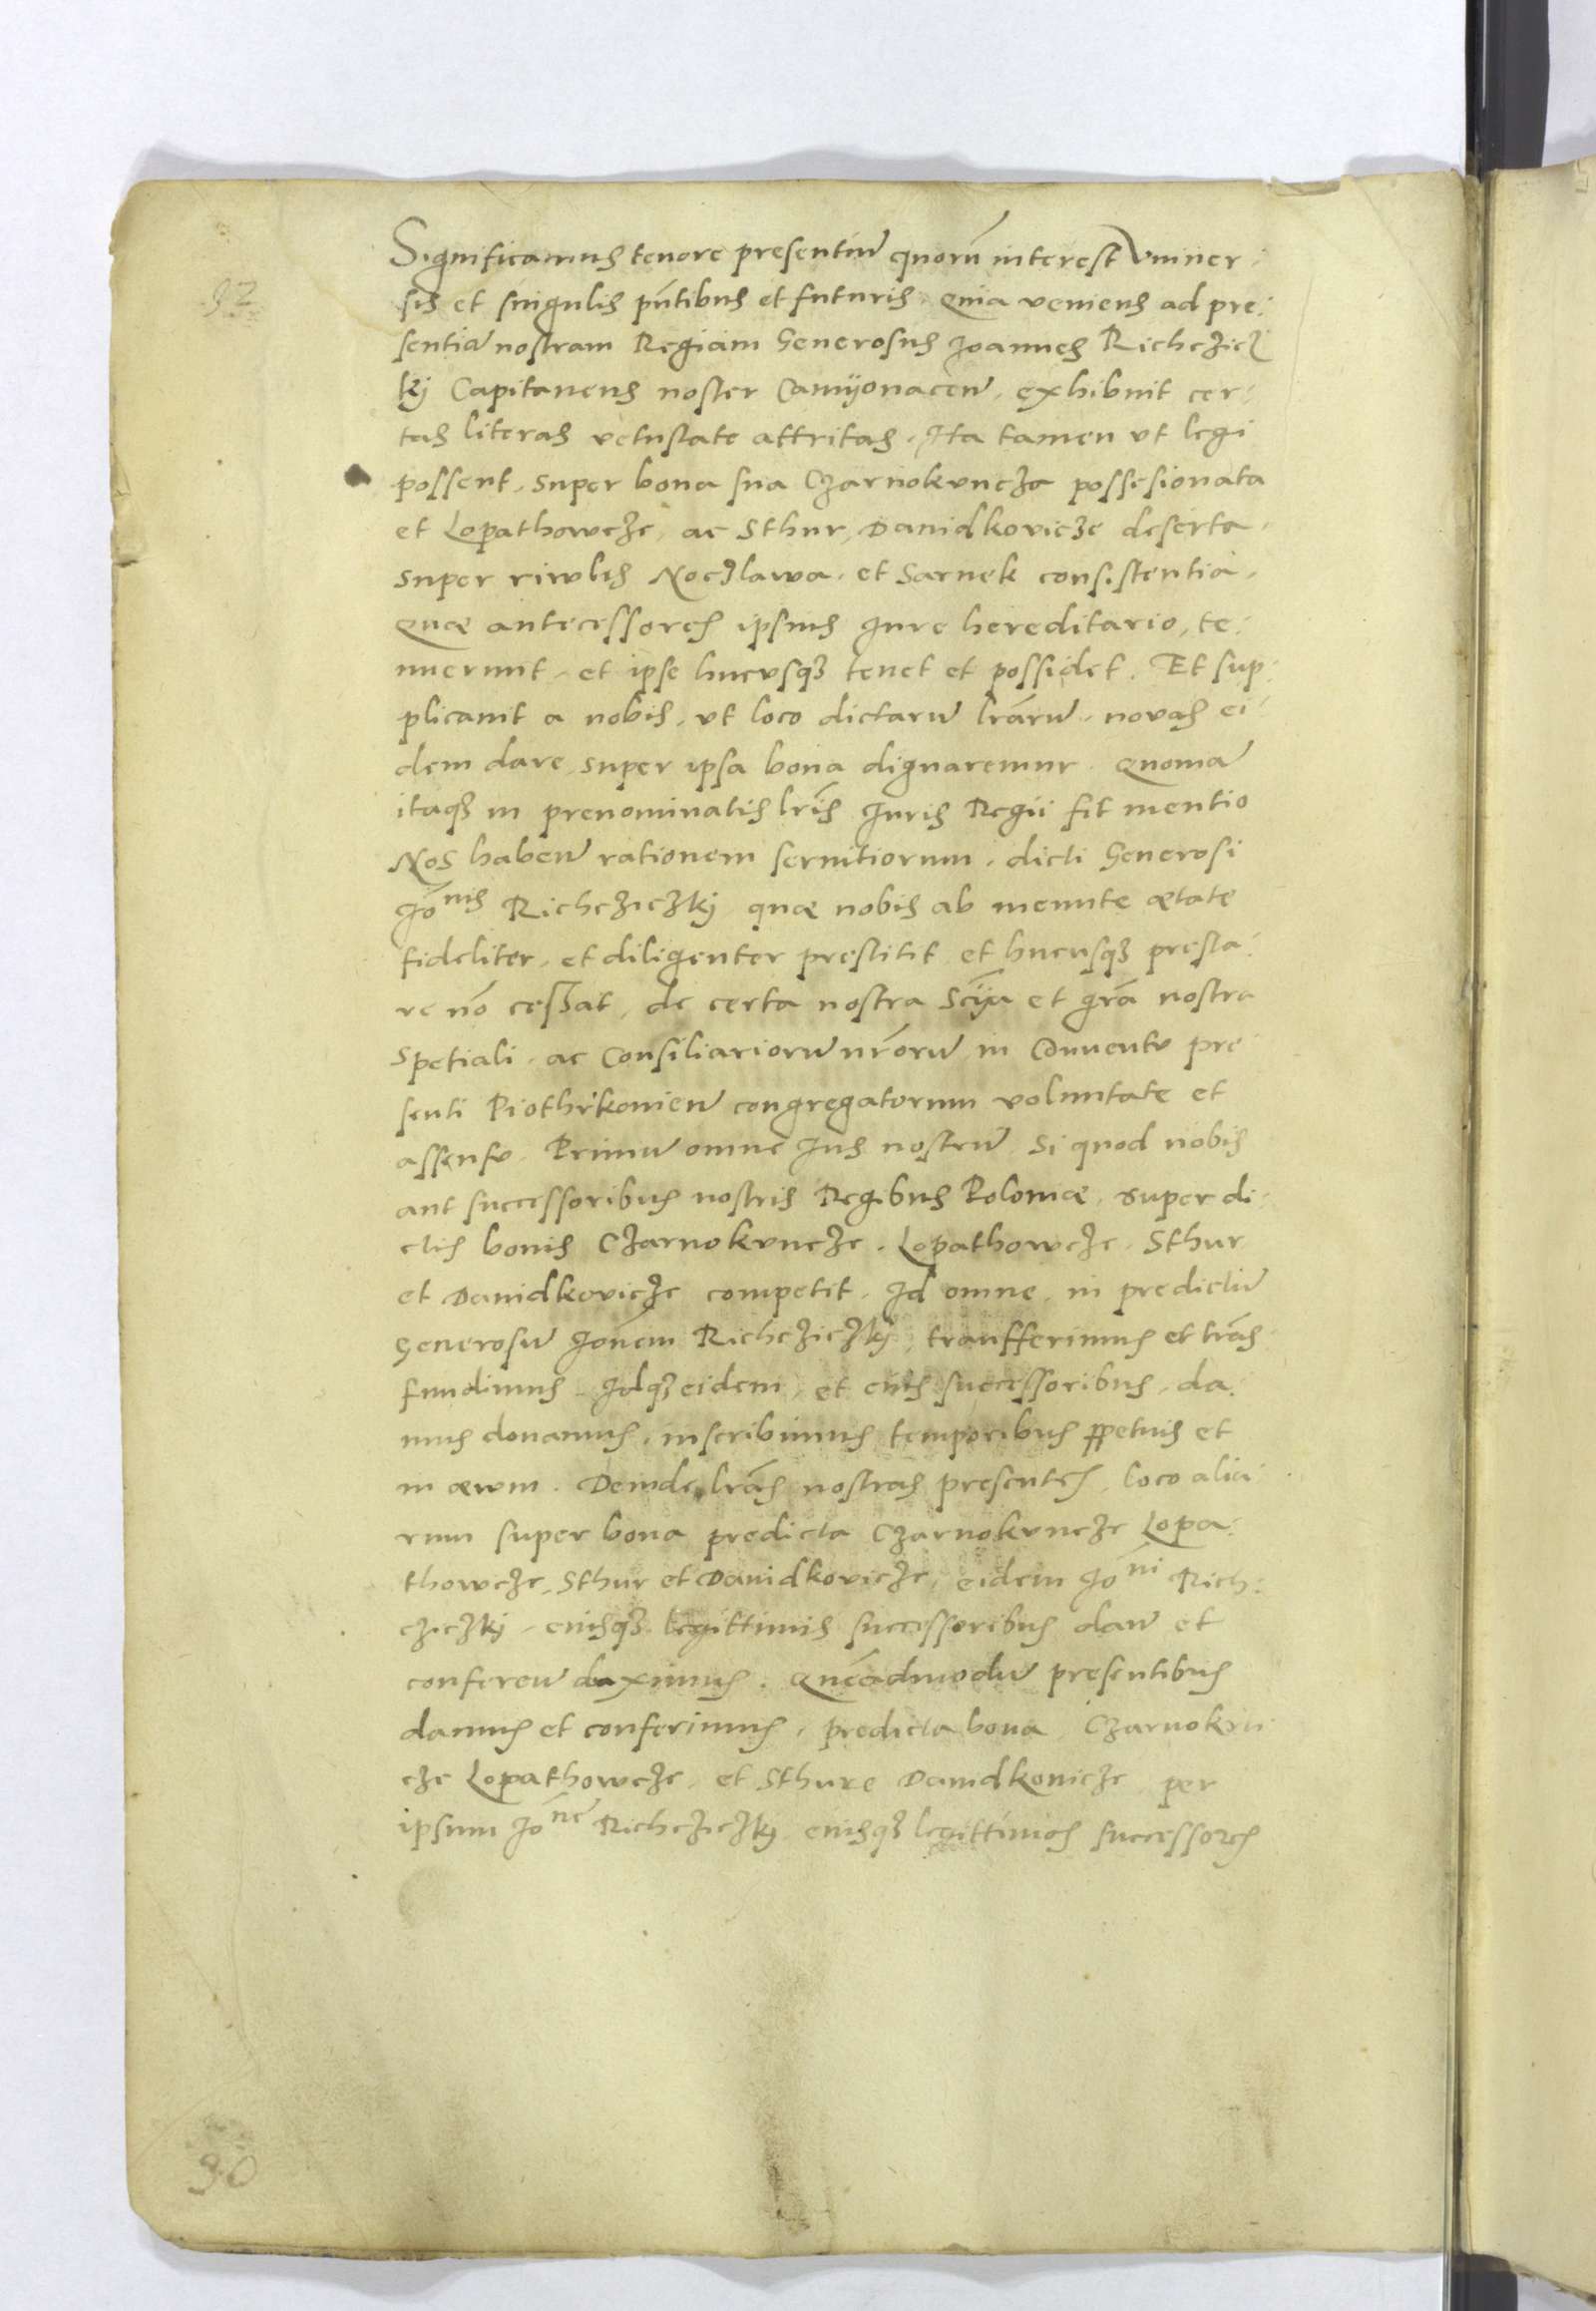 92
Significamus tenore presentiū quorū interest Vniuer:
sis et singulis pñtibus et futuris. Quia veniens ad pre:
sentiā nostram Regiam Generosus Joannes Richczicz
kÿ Capitaneus noster Camÿonaceñ. exhibuit cer:
tas literas vetustate attritas. Ita tamen vt legi
possent, super bona sua Czarnokvncza possesionata
et Lopathowcze, ac Sthur, Dauidkovicze deserta,
super riwlis Noczlawa, et Sarnek consistentia,
Quæ antecessores ipsius Jure hereditario, te:
nuerunt, et ipse hucvsqʒ tenet et possidet. Et sup:
plicauit a nobis, vt loco dictarū lrārū, novas ei:
dem dare, super ipsa bona dignaremur. Quoniā
itaqʒ in prenominatis lrīs Juris Regii fit mentio
Nos habeñ rationem seruitiorum, dicti Generosi
Joānis Richcziczkÿ quæ nobis ab ineunte ætate
fideliter, et diligenter prestitit et hucusqʒ presta:
re nō cessat, de certa nostra sciīa et grā nostra
Spetiali, ac Consiliariorū nr̄orū in Conuentv pre:
senti Piothrkovieñ congregatorum voluntate et
assensv. Primū omne Jus nostrū Si quod nobis
aut successoribus nostris Regibus Poloniæ, super di:
ctis bonis Czarnokvncze, Lopathowcze, Sthur
et Dauidkovicze competit, Id omne, in predictū
Generosū Joñem Richcziczkÿ, transfferimus et trās:
fundimus Idqʒ eidem, et eius successoribus, da:
mus donamus, inscribimus temporibus ꝑpetuis et
in æwm. Deinde lrās nostras presentes, loco alia:
rum super bona predicta Czarnokvncze Lopa:
thowcze, Sthur et Dauidkovicze, eidem Joāni Rich:
cziczkÿ, eiusqʒ legittimis successoribus dañ et
confereñ duximus. Quēadmodū presentibus
damus et conferimus, predicta bona Czarnokvn
cze Lopathowcze, et Sthure Dauidkovicze per
ipsum Joānē Richcziczkÿ eiusqʒ legittimos successores
90